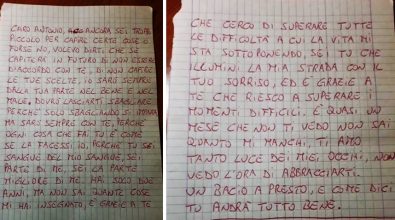 CARO ANTONIO, ANCORA SEI TROPPO
PICCOLO PER CAPIRE CERTE COSE O
FORSE NO, VOLEVO DIRTI CHE SE
CAPITERÀ IN FUTURO DI NON ESSERE
D'ACCORDO CON TE, DI NON CAPIRE
LE TUE SCELTE, IO SARÒ SEMPRE
DALLA TUA PARTE NEL BENE E NEL
MALE, DOVRÒ LASCIARTI SBAGLIARE
PERCHÉ SOLO SBAGLIANDO SI IMPARA
MA SARÒ SEMPRE CON TE, PERCHÉ
OGNI COSA CHE FAI TU È COME
SE LA FACESSI IO, PERCHÉ TU SEI
SANGUE DEL MIO SANGUE, SEI
PARTE DI ME, SEI LA PARTE
MIGLIORE DI ME HAI SOLO DUE
ANNI, MA NON SAI QUANTE COSE
MI HAI INSEGNATO, È GRAZIE A TE
CHE CERCO DI SUPERARE TUTTE
LE DIFFICOLTÀ A CUI LA VITA MI
STA SOTTOPONENDO, SEI TU CHE
ILLUMINI LA MIA STRADA CON IL
TUO SORRISO, ED È GRAZIE A
TE CHE RIESCO A SUPERARE I
MOMENTI DIFFICILI. È QUASI UN
MESE CHE NON TI VEDO NON SAI
QUANTO MI MANCHI, TI AMO
TANTO LUCE DEI MIEI OCCHI, NON
VEDO L'ORA DI ABBRACCIARTI.
UN BACIO A PRESTO, E COME DICI
TU ANDRÀ TUTTO BENE.